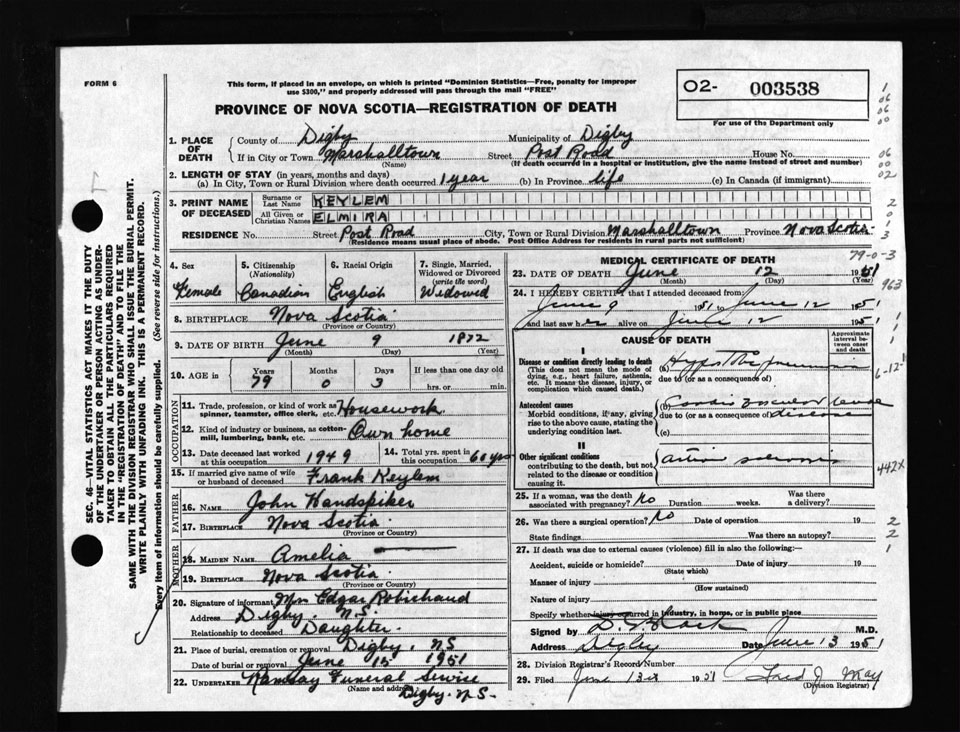 FORM 6
This form, if placed in an envelope, on which is printed "Dominion Statistics—Free, penalty for improper
use $300," and properly addressed will pass through the mail "FREE"
PROVINCE OF NOVA SCOTIA—REGISTRATION OF DEATH
O2- 003538
For use of the Department only
1. PLACE OF DEATH County of Digby Municipality of Digby
If in City or Town Marshalltown Street Post Road House No.
(Name) (If death occurred in a hospital or institution, give the name instead of street and number)
2. LENGTH OF STAY (in years, months and days)
(a) In City, Town or Rural Division where death occurred 1 year (b) In Province life (c) In Canada (if immigrant)
3. PRINT NAME OF DECEASED Surname or Last Name KEYLEM
All Given or Christian Names ELMIRA
RESIDENCE No. Street Post Road City, Town or Rural Division Marshalltown Province Nova Scotia
(Residence means usual place of abode. Post Office Address for residents in rural parts not sufficient)
4. Sex Female
5. Citizenship (Nationality) Canadian
6. Racial Origin English
7. Single, Married, Widowed or Divorced (write the word) Widowed
8. BIRTHPLACE Nova Scotia
(Province or Country)
9. DATE OF BIRTH June 9 1872
(Month) (Day) (Year)
10. AGE Years 79 Months 0 Days 3 If less than one day old hrs. or min.
OCCUPATION
11. Trade, profession, or kind of work as spinner, teamster, office clerk, etc. Housework
12. Kind of industry or business, as cotton-mill, lumbering, bank, etc. Own home
13. Date deceased last worked at this occupation 1949 14. Total yrs. spent in this occupation 60 yrs
15. If married give name of wife or husband of deceased Frank Keylem
FATHER
16. NAME John Handspiker
17. BIRTHPLACE Nova Scotia
(Province or Country)
MOTHER
18. MAIDEN NAME Amelia
19. BIRTHPLACE Nova Scotia
(Province or Country)
20. Signature of informant Mrs Edgar Robichaud
Address Digby. N.S.
Relationship to deceased Daughter.
21. Place of burial, cremation or removal Digby, NS
Date of burial or removal June 15 1951
22. UNDERTAKER Ramsay Funeral Service
(Name and address) Digby. N.S.
MEDICAL CERTIFICATE OF DEATH
23. DATE OF DEATH June 12 1951
(Month) (Day) (Year)
24. I HEREBY CERTIFY that I attended deceased from:
June 9 1951 to June 12 1951
and last saw her alive on June 12 1951
CAUSE OF DEATH
Approximate interval between onset and death
I
Disease or condition directly leading to death
(This does not mean the mode of dying, e.g., heart failure, asthenia, etc. It means the disease, injury, or complication which caused death.)
(a)
due to (or as a consequence of)
6-12-
Antecedent causes
Morbid conditions, if any, giving rise to the above cause, stating the underlying condition last.
(b)
due to (or as a consequence of) disease
(c)
II
Other significant conditions
contributing to the death, but not related to the disease or condition causing it.
25. If a woman, was the death associated with pregnancy? No Duration weeks. Was there a delivery?
26. Was there a surgical operation? No Date of operation 19
State findings Was there an autopsy?
27. If death was due to external causes (violence) fill in also the following:—
Accident, suicide or homicide? Date of injury 19
(State which)
Manner of injury
(How sustained)
Nature of injury
Specify whether injury occurred in industry, in home, or in public place
Signed by M.D.
Address Digby Date June 13 1951
28. Division Registrar's Record Number
29. Filed June 13th 1951 Fred J
(Division Registrar)
SEC. 46—VITAL STATISTICS ACT MAKES IT THE DUTY
OF THE UNDERTAKER OR PERSON ACTING AS UNDERTAKER
TO OBTAIN ALL THE PARTICULARS REQUIRED
IN THE "REGISTRATION OF DEATH" AND TO FILE THE
SAME WITH THE DIVISION REGISTRAR WHO SHALL ISSUE THE BURIAL PERMIT.
WRITE PLAINLY WITH UNFADING INK. THIS IS A PERMANENT RECORD.
Every item of information should be carefully supplied. (See reverse side for instructions.)
1
06
06
00
06
00
02
2
0
1
3
79-0-3
963
442X
2
2
1